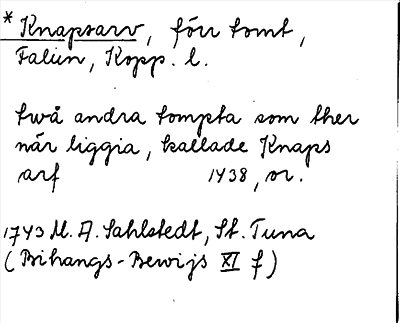 * Knapsarv, förr tomt,
Falun, Kopp. l.
twå andra tompta som ther
när liggia, kallade Knaps
arf 1438, or.
1743 M. A. Sahlstedt, St. Tuna
(Bihangs-Bewijs XI f)